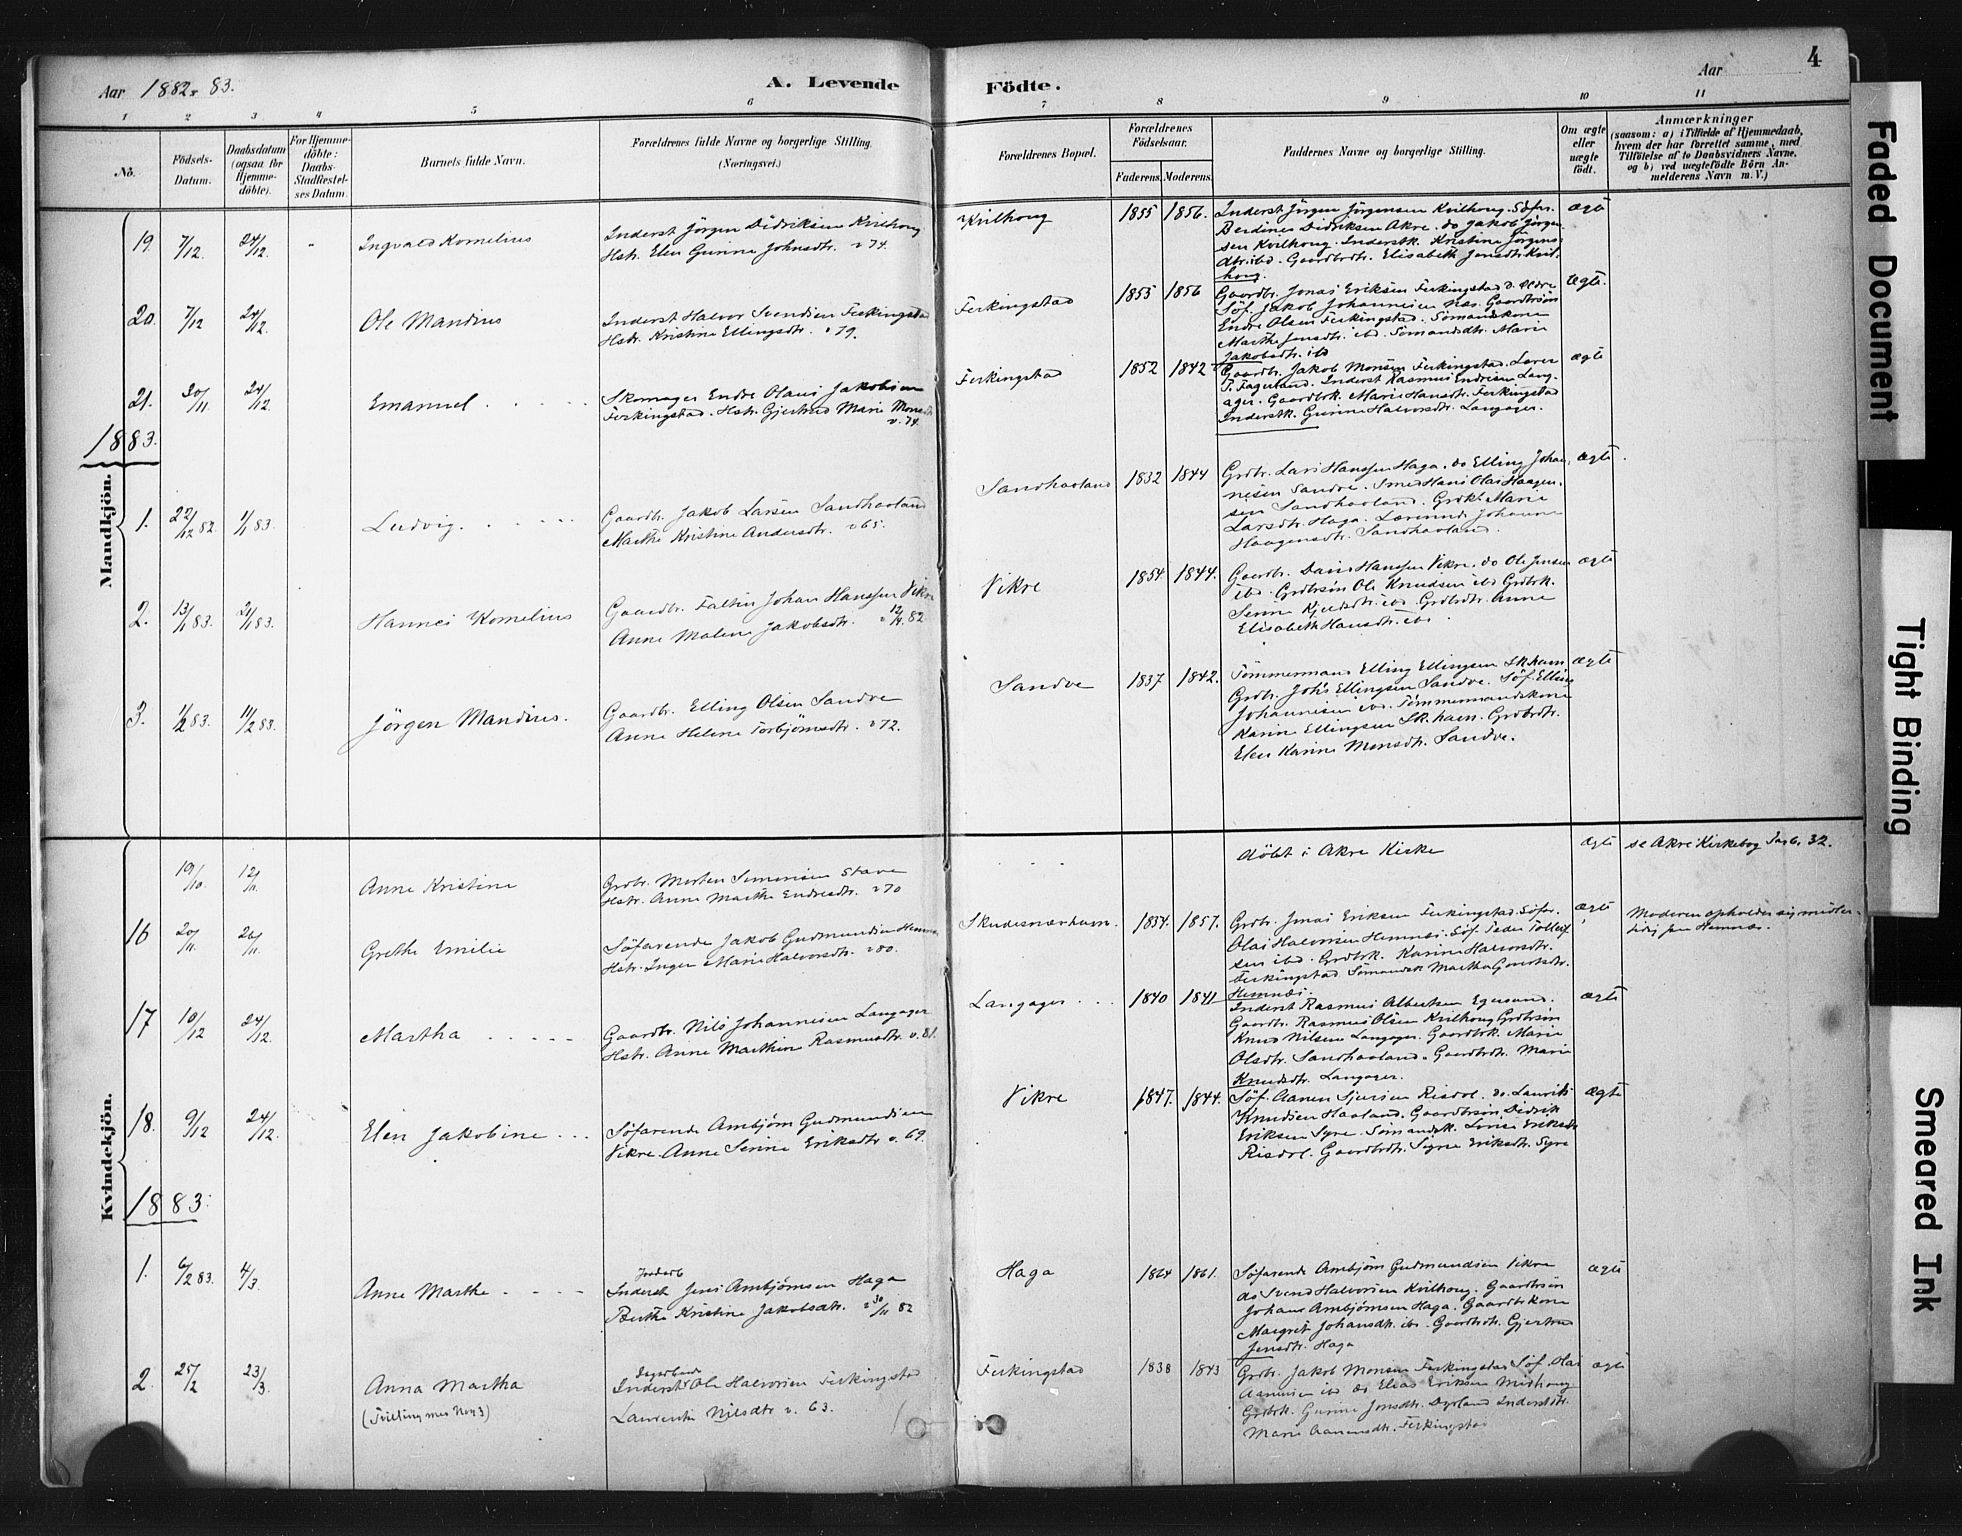 Aar 1882-83.
A. Levende
Födte.
Aar
4
1 2 3 4 5 6 7 8 9 10 11
No.
Födsels-
Datum.
Daabsdatum
(ogsaa for
Hjemme-
döbte).
For Hjemme-
döbte:
Daabs-
Stadfæstel-
ses Datum.
Barnets fulde Navn.
Forældrenes fulde Navne og borgerlige Stilling.
(Næringsvei.)
Forældrenes Bopæl.
Forældrenes
Födselsaar.
Faderens. Moderens.
Faddernes Navne og borgerlige Stilling.
Om ægte
eller
uægte
födt.
Anmærkninger
(saasom: a) i Tilfælde af Hjemmedaab,
hvem der har forrettet samme, med
Tilföielse af to Daabsvidners Navne,
og b) ved uægtefödte Börn An-
melderens Navn m. V.)
Mandkjön.
19. 7/12. 24/12. Ingvald Kornelius
Inderst Jörgen Didriksen Kvilhoug
Hstr. Elen Gurine Johnsdtr. v 74.
Kvilhoug 1855 1856.
Inderst Jörgen Jörgensen Kvilhoug. Söfar.
Berdines Didriksen Akre. do Jakob Jörgen-
sen Kvilhoug. Inderstk. Kristine Jörgens-
dtr. ibd. Gaardbrdtr. Elisabeth Jensdtr. Kvil-
houg.
ægte
20. 7/12 24/12. Ole Mandius
Inderst Halvor Svendsen Ferkingstad
Hstr. Kristine Ellingsdtr. v 79.
Ferkingstad 1855 1856
Gaardbr. Jonas Eriksen Ferkingstad d. ældre
Söf. Jakob Johannesen Næs. Gaardbrsön
Endre Olsen Ferkingstad. Sömandskone
Marthe Jensdtr. ibd. Sömandsdtr. Marie
Jakobsdtr. ibd
ægte.
21. 20/11. 24/12. Emanuel
Skomager Endre Olaus Jakobsen
Ferkingstad. Hstr. Gjertrud Marie Monsdtr
v. 74.
Ferkingstad 1852 1842
Gaardbr. Jakob Monsen Ferkingstad. Lærer
T. Fagerland. Inderst Rasmus Endresen Lang-
ager. Gaardbrk. Marie Hansdtr. Ferkingstad
Inderstk. Gurine Halvorsdtr. Langager.
ægte
1883.
1. 22/12 82. 1/1 83. Ludvig.
Gaardbr. Jakob Larsen Sandhaaland
Marthe Kristine Andersdtr. v 65.
Sandhaaland 1832 1844
Grdbr. Lars Hansen Haga. do Elling Johan-
nesen Sandve. Smed Hans Olai Haagen-
sen Sandhaaland. Grdk. Marie
Larsdtr. Haga. Johanne
Haagensdtr. Sandhaaland.
ægte.
2. 13/1 83. 21/1 83. Hannes Kornelius
Gaardbr. Faltin Johan Hanssen Vikre
Anne Malene Jakobsdtr. v 12/4. 82
Vikre 1854. 1844.
Gaardbr. Hanssen Vikre. do Ole Jensen
ibd. Grdbrsön Ole Knudsen ibd. Grdbrk.
Serine Kjeldsdtr. ibd. Grdbrdtr. Anne
Elisabeth Hansdtr. ibd.
ægte
3. 1/2 83. 11/2 83. Jörgen Mandius.
Gaardbr. Elling Olsen Sandve
Anne Helene Torbjörnsdtr. v 72.
Sandve 1837 1842.
Tömmermand Elling Ellingsen Sk.havn
Grdbr. Johs Ellingsen Sandve. Söf. Elling
Johannesen ibd. Tömmermandskone
Karine Ellingsen Sk.havn. Grdbrdtr.
Elen Karine Monsdtr. Sandve.
ægte
Kvindekjön.
19/10. 12/11. Anne Kristine
Grdbr. Morten Simensen Stave
Hstr. Anne Marthe Endresdtr. v 70
döbt i Akre Kirke
ægte
se Akre Kirkebog Pag. 32.
16 20/11. 26/11. Grethe Emilie
Söfarende Jakob Gudmundsen Hemnæs
Hstr. Inger Marie Halvorsdtr. v 80.
Skudesnæshavn. 1854. 1857.
Grdbr. Jonas Eriksen Ferkingstad. Söfar.
Olai Halvorsen Hemnæs. Söf. Peder Tollef-
sen ibd. Grdbrk. Karine Halvorsdtr.
Ferkingstad Sömandsk. Martha Govertsdtr.
Hemnæs.
ægte
Moderen opholder sig midler-
tidig paa Hemnæs.
17 10/12 24/12. Martha
Gaardbr. Nils Johannesen Langager
Hstr. Anne Marthine Rasmusdtr. v. 81.
Langager 1840 1841
Inderst Rasmus Albertsen Egesund.
Gaardbr. Rasmus Olsen Kvilhoug Grdbrsön
Knud Nilsen Langager. Gaardbrk. Marie
Olsdtr. Sandhaaland. Gaardbrdtr. Marie
Knudsdtr. Langager.
ægte
18. 9/12 24/12. Elen Jakobine
Söfarende Ambjörn Gudmundsen
Vikre. Anne Serine Eriksdtr v. 69.
Vikre 1847. 1844.
Söf. Aanen Sjursen Risdal. do. Laurits
Knudsen Haaland. Gaardbrsön Didrik
Eriksen Syre. Sömandsk. Lovise Eriksdtr
Risdal. Gaardbrdtr. Signe Eriksdtr. Syre
ægte
1883.
1. 6/2 83. 4/3. Anne Marthe
Jordarb
Inderst Jens Ambjörnsen Haga
Berthe Kristine Jakobsdtr. v 30/11 82
Haga 1864 1861.
Söfarende Ambjörn Gudmundsen Vikre
do Svend Halvorsen Kvilhoug. Gaardbrsön
Johan Ambjörnsen Haga. Gaardbrkone
Margret Johansdtr. ibd. Gaardbrdtr. Gjertrud
Jensdtr. Haga
ægte
2. 25/2 23/3. Anna Martha
(Tvilling med No 3)
Dagarbeid
Inderst Ole Halvorsen Ferkingstad
Laurentse Nilsdtr v. 63.
Ferkingstad 1838 1843
Grdbr. Jakob Monsen Ferkingstad Söf. Olai
Aanensen ibd do Elias Eriksen Midhoug
Grdbrk. Gurine Jonsdtr. Dyrland Inderstdtr.
Marie Aanensdtr. Ferkingstad
ægte
Faded Document
Tight Binding
Smeared Ink